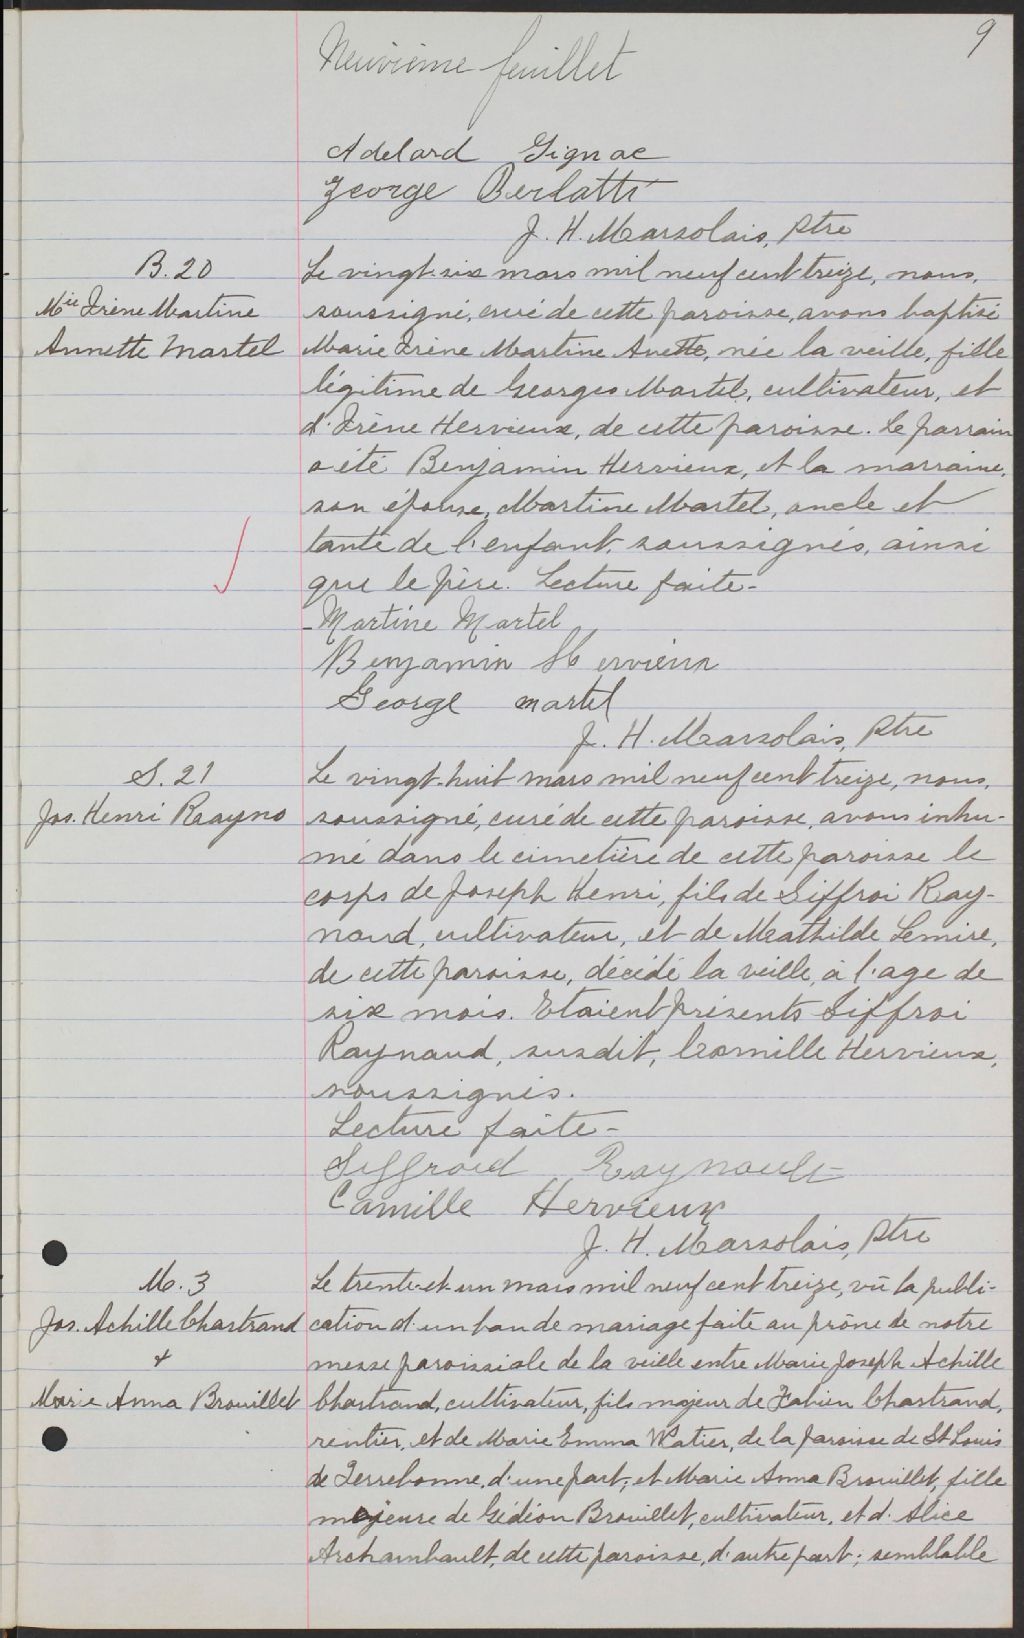 9
Neuvième feuillet
Adelard Gignac
George Berlatti
J. H. Marsolais, Ptre
B. 20
Mie Irène Martine
Annette Martel
Le vingt-six mars mil neuf cent treize, nous,
soussigné, curé de cette paroisse, avons baptisé
Marie Irène Martine Anette, née la veille, fille
légitime de Georges Martel, cultivateur, et
d'Irène Hervieux, de cette paroisse. Le parrain
a été Benjamin Hervieux, et la marraine,
son épouse, Martine Martel, oncle et
tante de l'enfant, soussignés, ainsi
que le père. Lecture faite-
Martine Martel
Benjamin Hervieux
George martel
J. H. Marsolais, Ptre
S. 21
Jos. Henri Rayno
Le vingt-huit mars mil neuf cent treize, nous,
soussigné, curé de cette paroisse, avons inhu-
mé dans le cimetière de cette paroisse le
corps de Joseph Henri, fils de Siffroi Ray-
naud, cultivateur, et de Mathilde Lemire,
de cette paroisse, décédé la veille, à l'age de
six mois. Etaient présents Siffroi
Raynaud, susdit, Camille Hervieux,
soussignés.
Lecture faite-
Siffroid Raynault
Camille Hervieux
J. H. Marsolais, Ptre
M. 3
Jos. Achille Chartrand
+
Marie Anna Brouillet
Le trente-et-un mars mil neuf cent treize, vû la publi-
cation d'un ban de mariage faite au prône de notre
messe paroissiale de la veille entre Marie Joseph Achille
Chartrand, cultivateur, fils majeur de Fabien Chartrand,
rentier, et de Marie Emma Watier, de la paroisse de St Louis
de Terrebonne, d'une part; et Marie Anna Brouillet, fille
majeure de Gédéon Brouillet, cultivateur, et d'Alice
Archambault, de cette paroisse, d'autre part; semblable